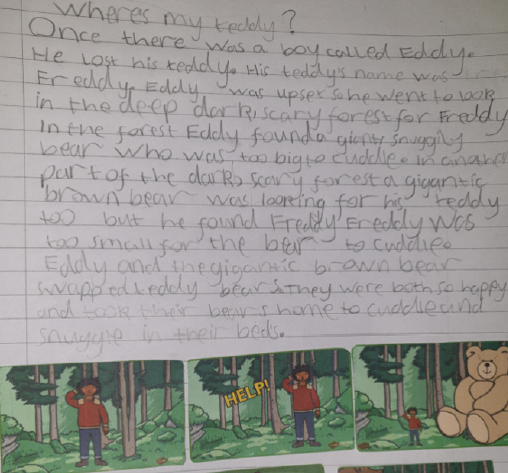 Wheres my teddy?
Once there was a boy called Eddy.
He lost his teddy. His teddy's name was
Freddy. Eddy was upset so he went to look
in the deep dark, scary forest for Freddy
In the forest Eddy found a giant, snuggily
bear who was too big to cuddle. in another
part of the dark, scary forest a gigantic
brown bear was looking for his teddy
too but he found Freddy Freddy was
too small for the bear to cuddle.
Eddy and the gigantic brown bear
swapped teddy bears They were both so happy
and took their bears home to cuddle and
snuggle in their beds.
HELP!